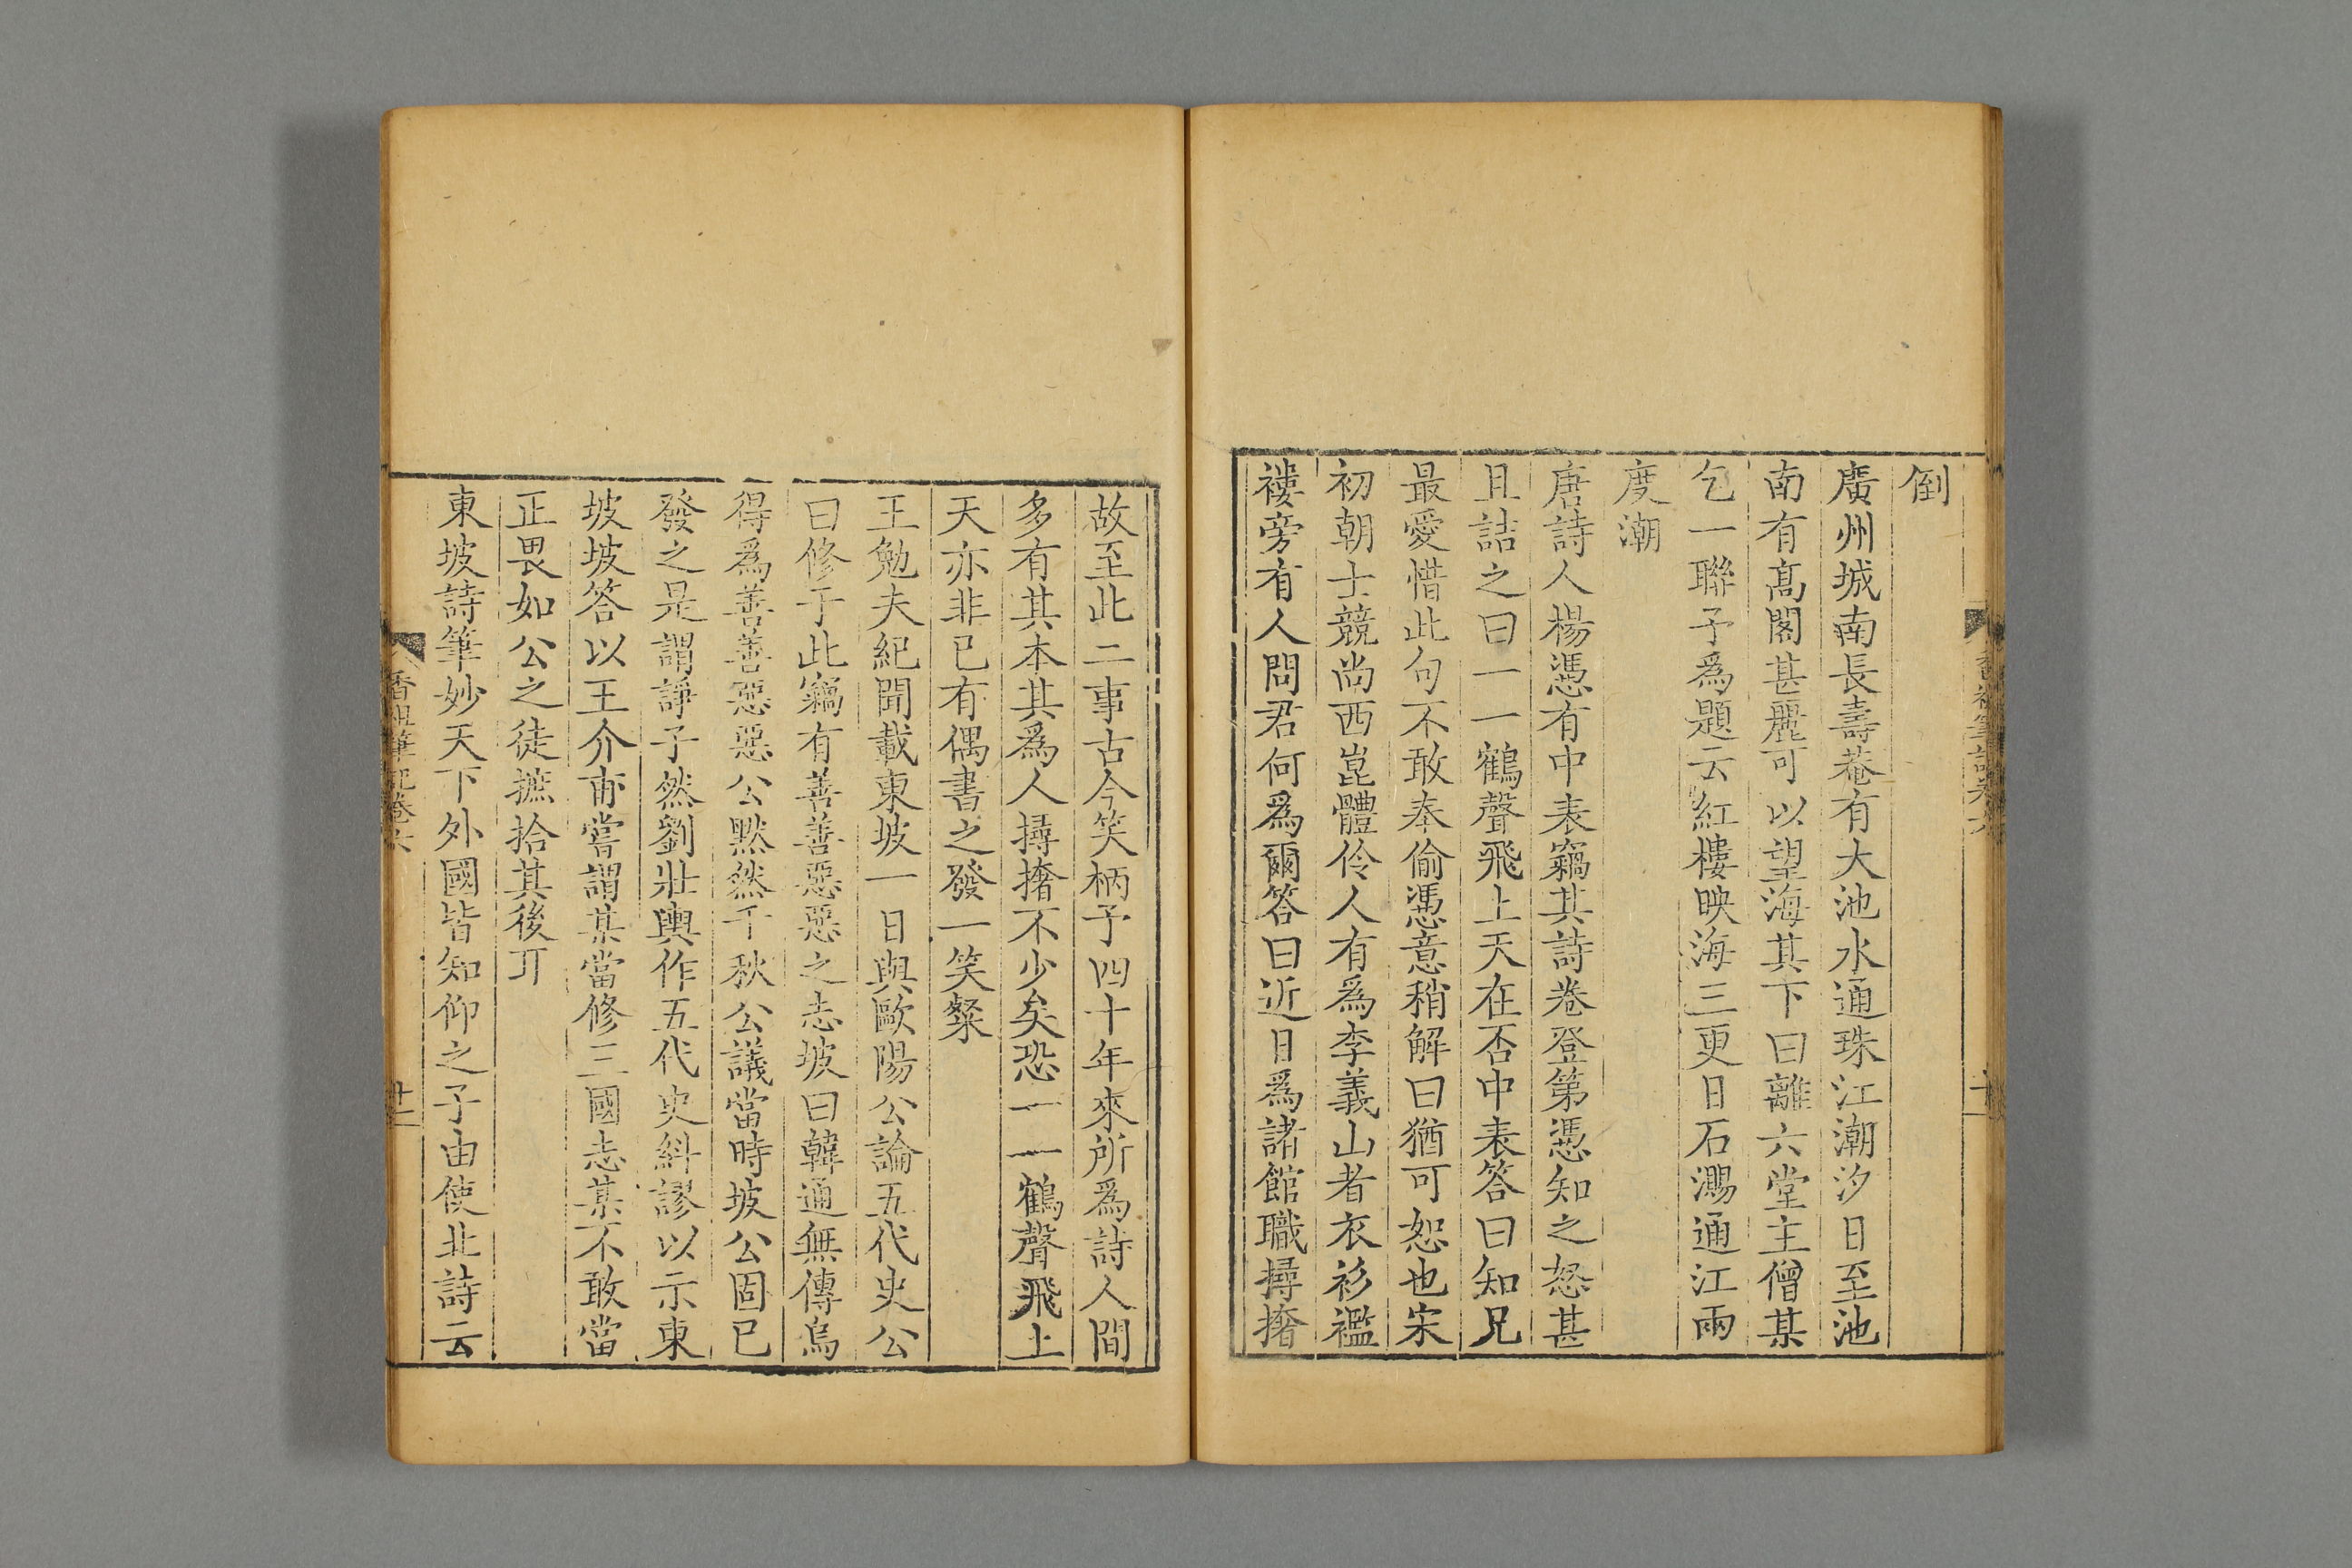 倒
廣州城南長壽菴有大池水通珠江潮汐日至池
南有髙閣甚麗可以望海其下曰離六堂主僧某
乞一聯予為題云紅樓映海三更日石㵼通江兩
度潮
唐詩人楊憑有中表竊其詩卷登第憑知之怒甚
且詰之曰一一鶴聲飛上天在否中表答曰知兄
最愛惜此句不敢奉偷憑意稍解曰猶可恕也宋
初朝士競尚西崑體伶人有爲李義山者衣衫襤
褸旁有人問君何爲爾答曰近日爲諸館職撏撦
故至此二事古今笑柄予四十年來所爲詩人間
多有其本其爲人撏撦不少矣恐一一鶴聲飛上
天亦非已有偶書之發一笑粲
王勉夫紀聞載東坡一日與歐陽公論五代史公
曰修于此竊有善善惡惡之志坡曰韓通無傳烏
得爲善善惡惡公黙然千秋公議當時坡公固已
發之是謂諍子然劉壯輿作五代史糾謬以示東
坡坡答以王介甫嘗謂某當修三國志某不敢當
正畏如公之徒摭拾其後丌
東坡詩筆妙天下外國皆知仰之子由使北詩云
香祖筆記卷六
十二